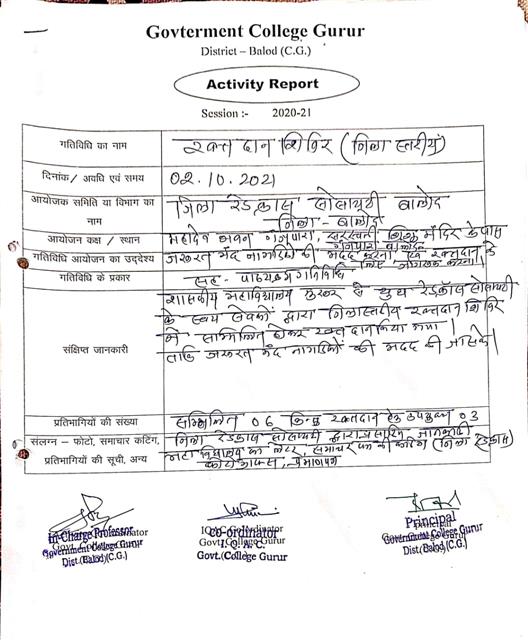 Govterment College Gurur
District – Balod (C.G.)
Activity Report
Session :- 2020-21
गतिविधि का नाम
रक्त दान शिविर (जिला स्तरीय)
दिनांक/ अवधि एवं समय
02.10.2021
आयोजक समिति या विभाग का नाम
जिला रेडक्रास सोसायटी बालोद
जिला - बालोद
आयोजन कक्ष / स्थान
महादेव भवन गंजपारा, सरस्वती शिशु मंदिर के पास
गंजपारा बालोद
गतिविधि आयोजन का उद्देश्य
जरूरत मंद नागरिकों की मदद करना, एवं रक्तदान के
लिए जागरूक करना।
गतिविधि के प्रकार
सह - पाठ्यक्रम गतिविधि
संक्षिप्त जानकारी
शासकीय महाविद्यालय गुरूर के यूथ रेडक्रॉस सोसायटी
के स्वयं सेवकों द्वारा जिलास्तरीय रक्तदान शिविर
में सम्मिलित होकर रक्तदान किया गया।
ताकि जरूरत मंद नागरिकों की मदद की जा सके।
प्रतिभागियों की संख्या
सम्मिलित 06 किन्तु रक्तदान हेतु उपयुक्त 03
संलग्न – फोटो, समाचार कटिंग,
प्रतिभागियों की सूची, अन्य
जिला रेडक्रास सोसायटी द्वारा प्रसारित जानकारी
महाविद्यालय का लेटर, समाचार पत्र की कटिंग (जिला रेडक्रास)
फोटोग्राफ्स, प्रमाणपत्र
In-Charge Professor
Government College Gurur
Dist.(Balod)(C.G.)
IQAC Coordinator
Co-ordinator
I.Q.A.C.
Govt. College Gurur
Dist.(Balod)(C.G.)
Principal
Government College Gurur
Dist.(Balod)(C.G.)